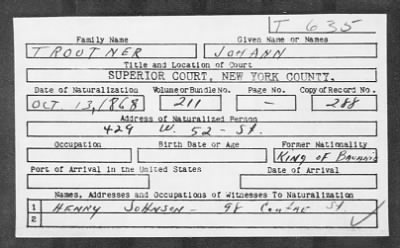 T 635
Family Name Given Name or Names
TROUTNER JOHANN
Title and Location of Court
SUPERIOR COURT, NEW YORK COUNTY.
Date of Naturalization Volume or Bundle No. Page No. Copy of Record No.
OCT. 13, 1868 211 - 288
Address of Naturalized Person
429 W. 52 - St.
Occupation Birth Date or Age Former Nationality
KING OF BAVARIA
Port of Arrival in the United States Date of Arrival
Names, Addresses and Occupations of Witnesses To Naturalization
1 HENRY JOHNSON - 98 Centre St.
2